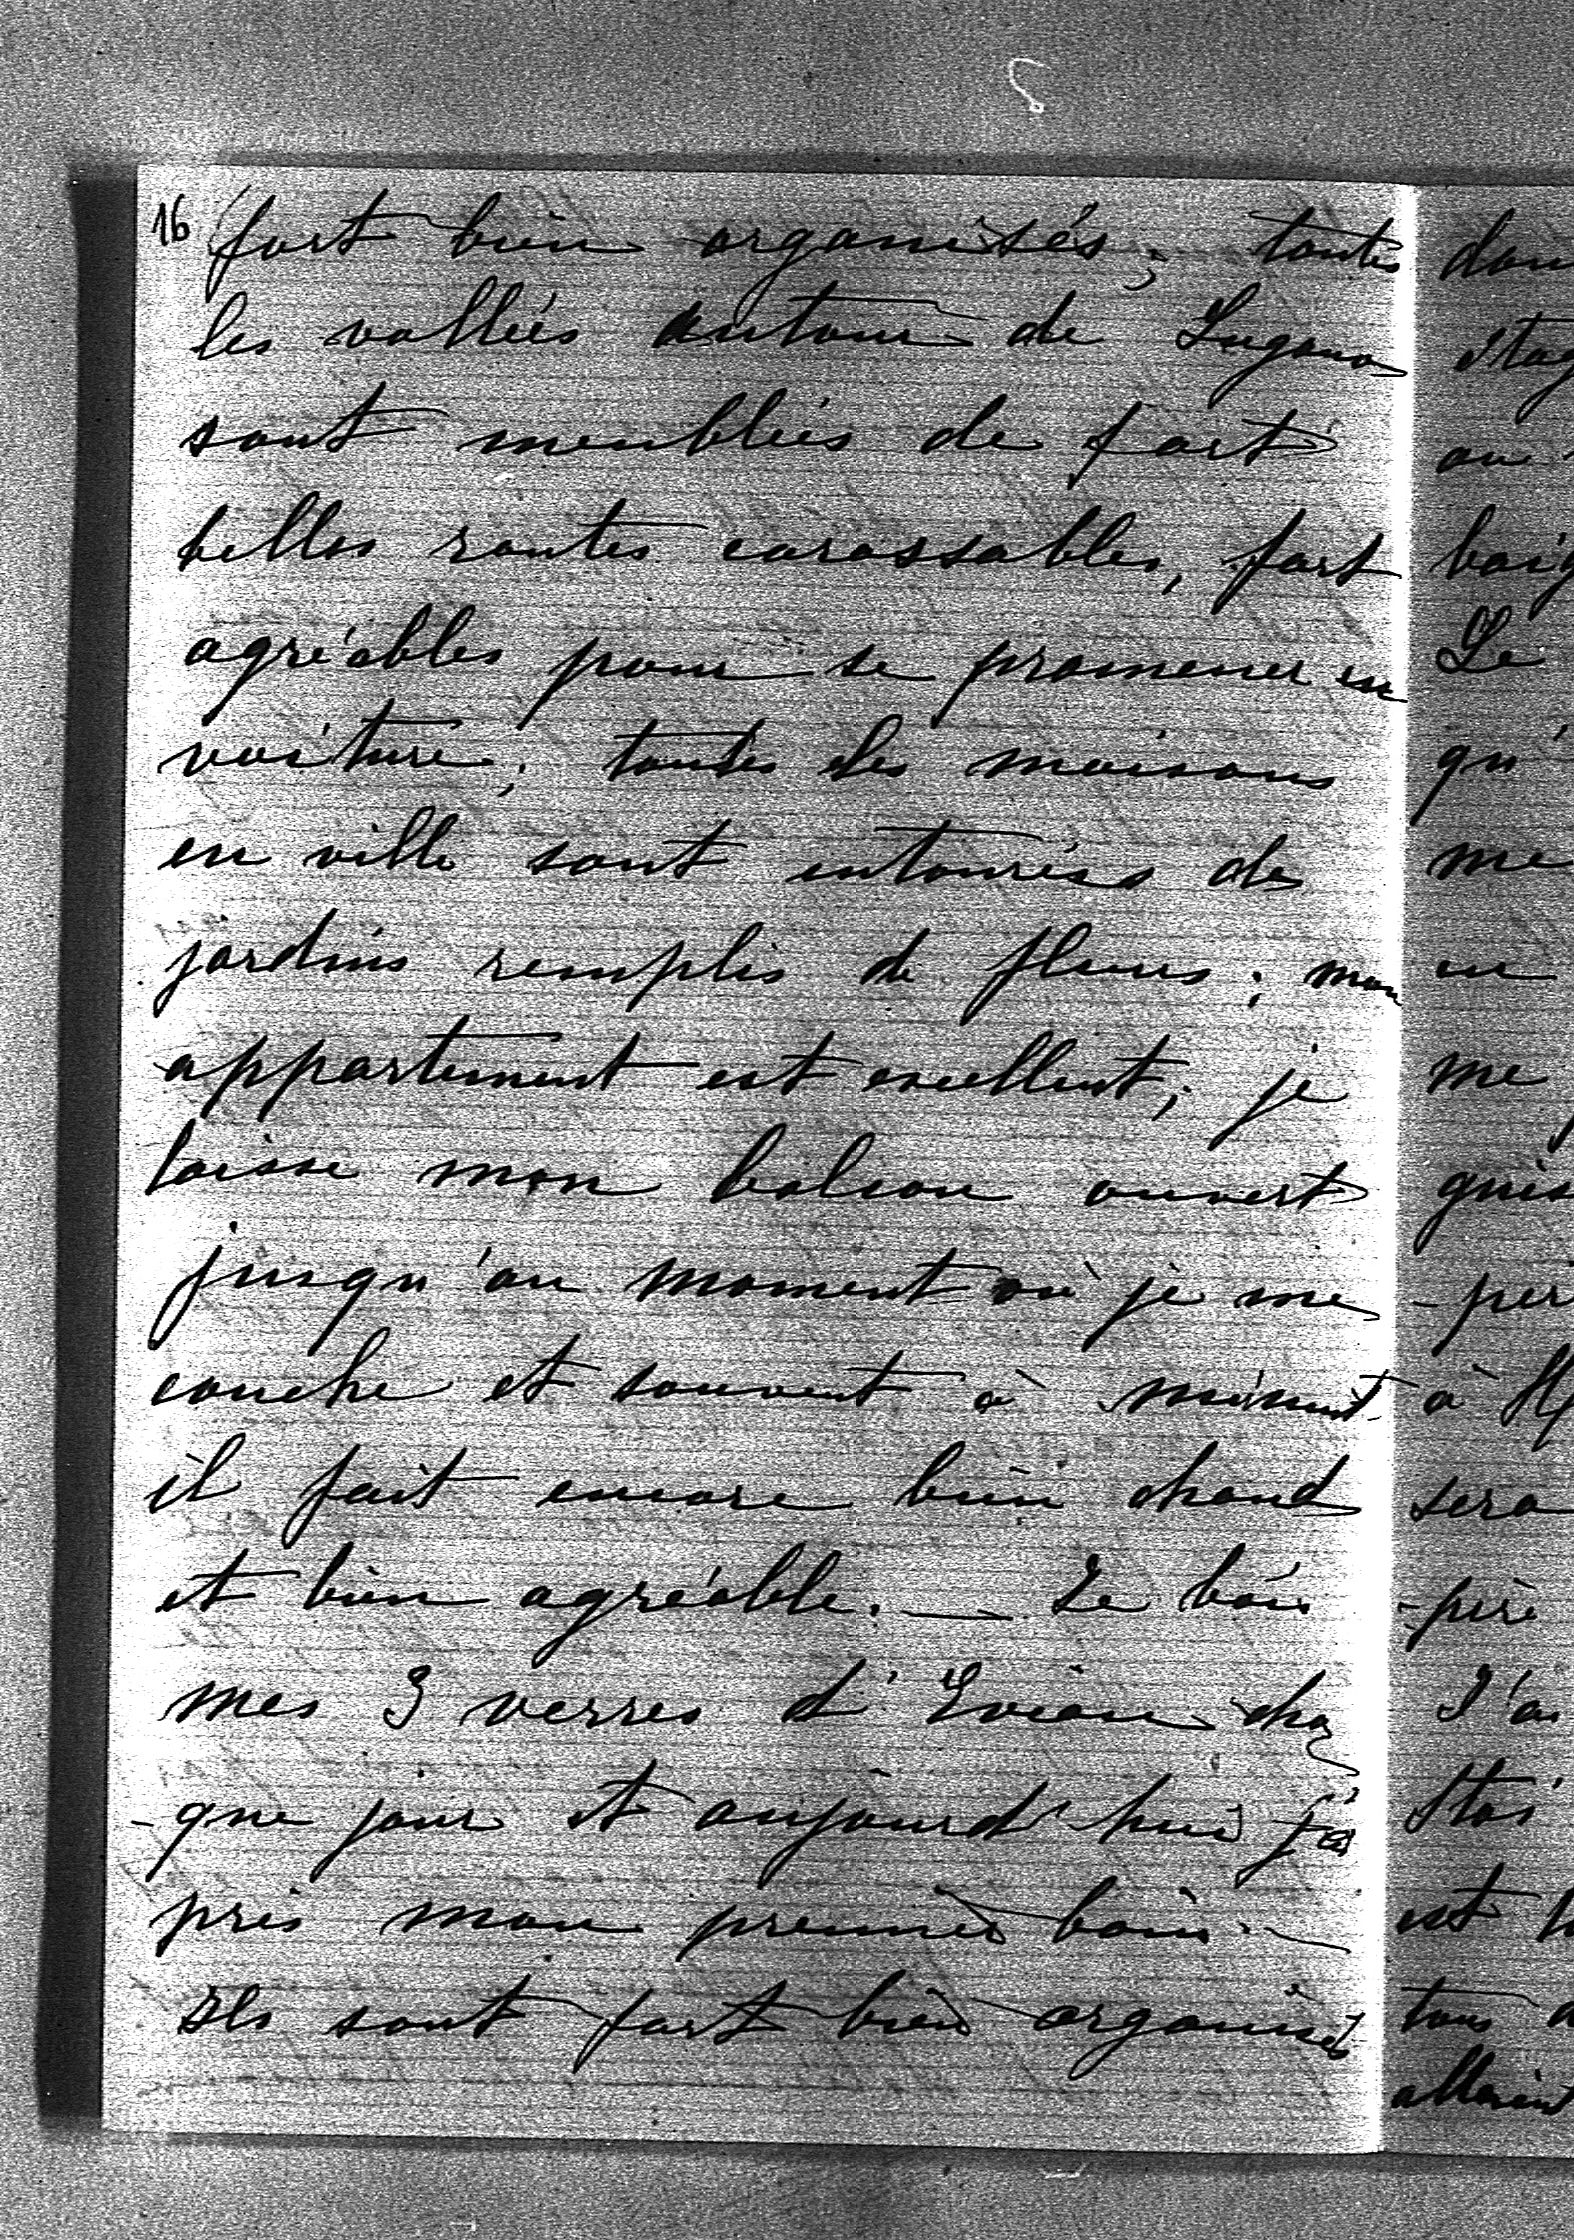 16 fort bien organisés; toutes
les vallées autour de Lugano
sont meublées de fort
belles routes carossables, fort
agréables pour se promener en
voiture; toutes les maisons
en ville sont entourées de
jardins remplis de fleurs; mon
appartement est excellent; je
laisse mon balcon ouvert
jusqu'au moment où je me
couche et souvent à minuit
il fait encore bien chaud
et bien agréable. — Je bois
mes 3 verres d'Evian cha
-que jour et aujourd'hui j'ai
pris mon premier bain. —
Ils sont fort bien organisés